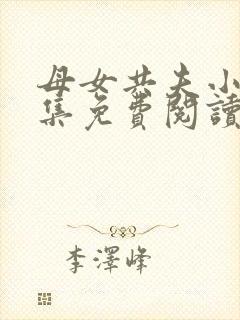 母女共夫小
集免費閱讀
李澤峰